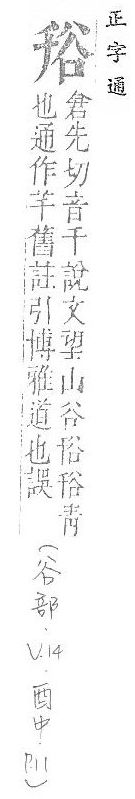 正字通
谸
倉先切音千說文望山谷谸谸青
也通作芊舊註引博雅道也誤
(谷部.V.14.酉中.P.11)